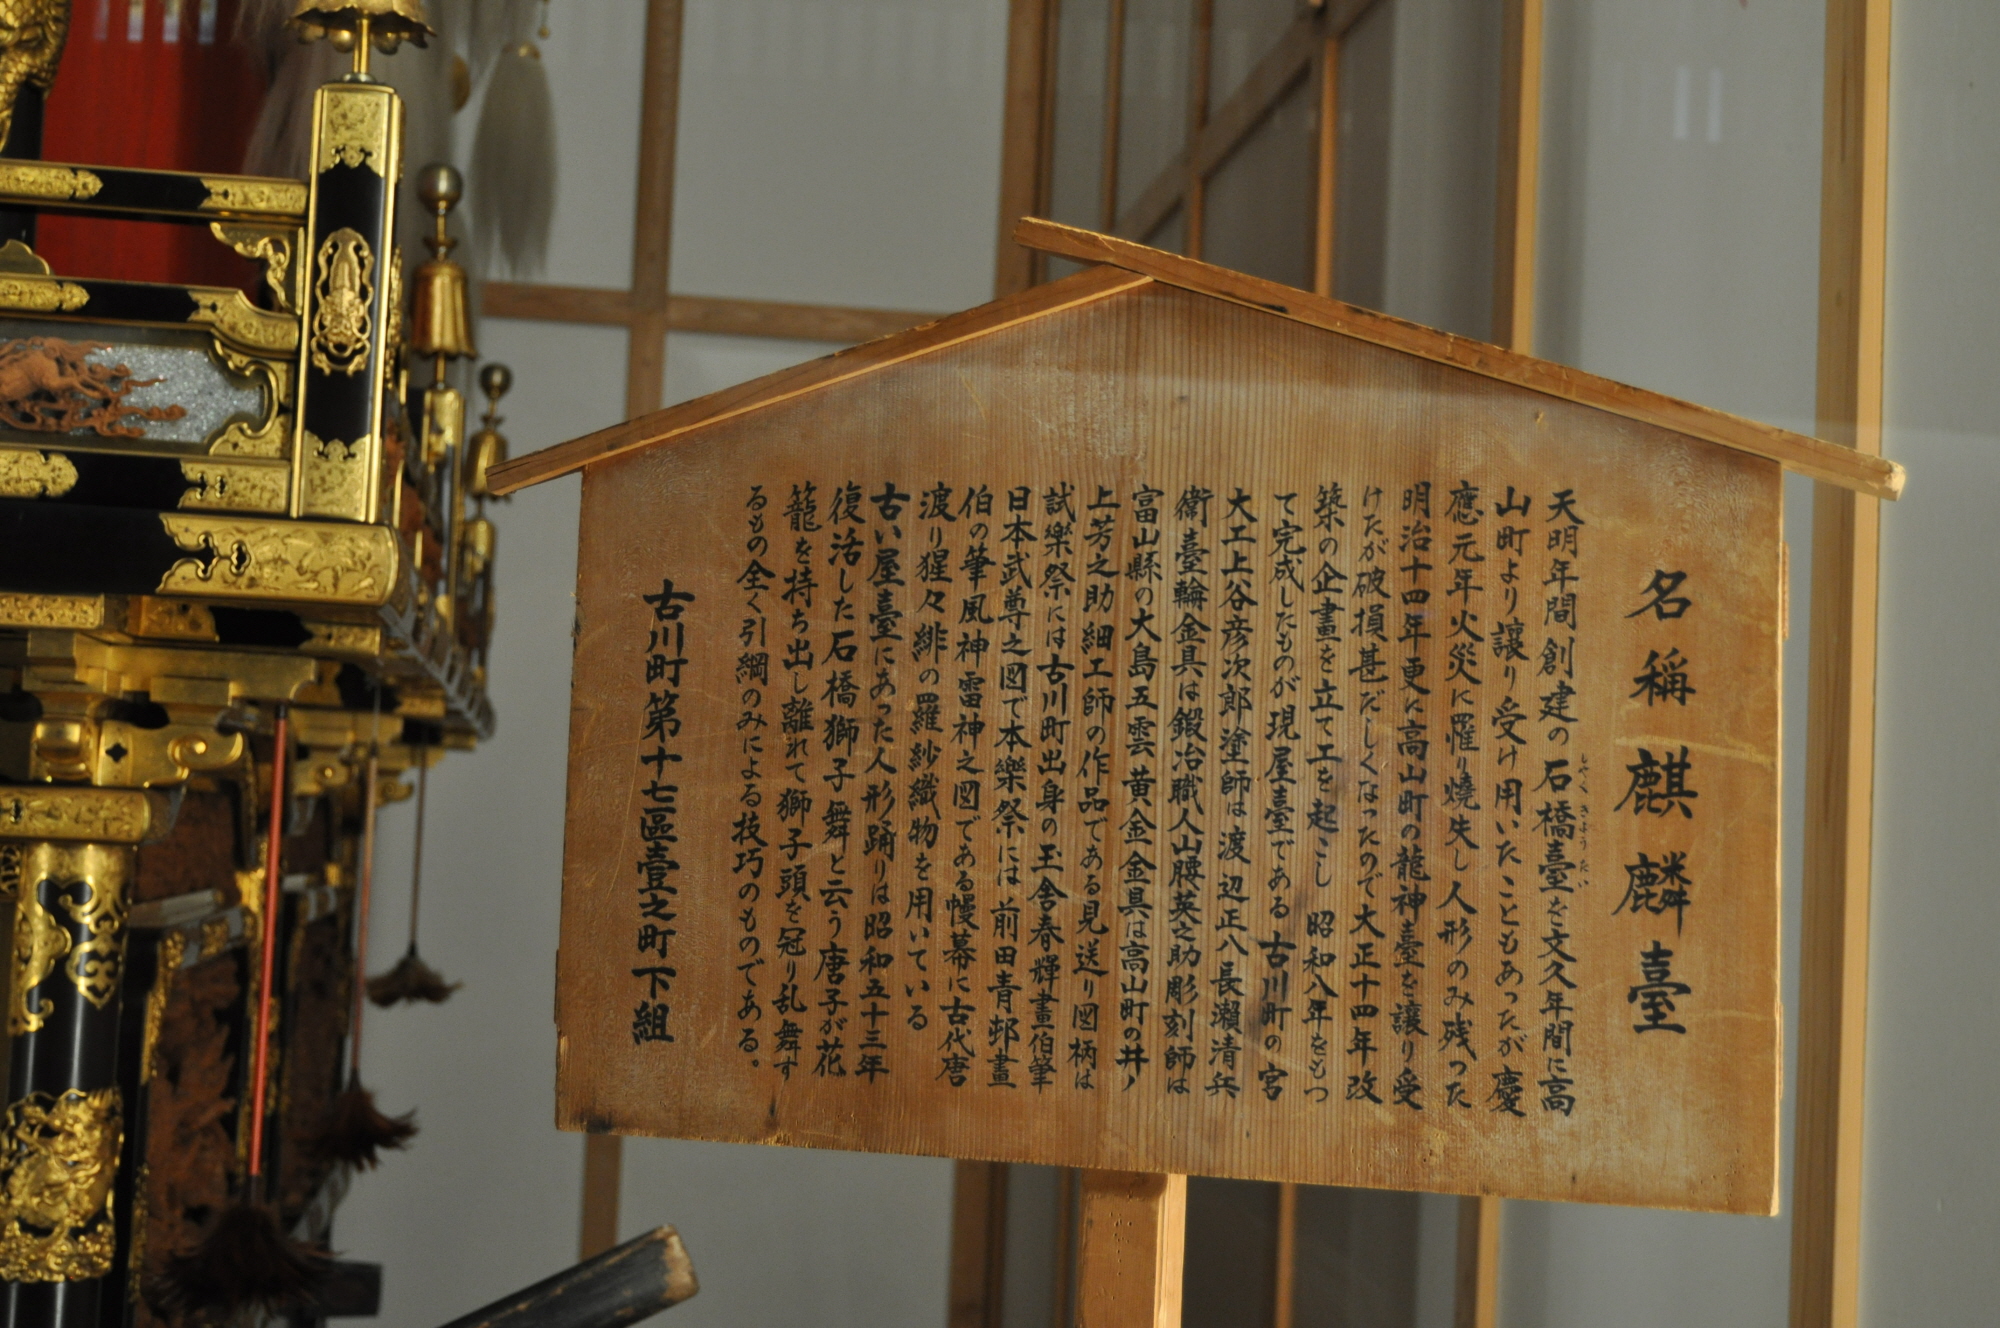 名稱 麒麟臺
天明年間創建の石橋臺を文久年間に高
しやくきようたい
山町より讓り受け用いたこともあったが慶
應元年火災に罹り焼失し人形のみ残った
明治十四年更に高山町の龍神臺を讓り受
けたが破損甚だしくなったので大正十四年改
築の企畫を立て工を起こし 昭和八年をもつ
て完成したものが現屋臺である 古川町の宮
大工上谷彦次郎塗師は渡辺正八長瀬清兵
衛 臺輪金具は鍛冶職人山腰英之助彫刻師は
富山縣の大島五雲 黄金金具は高山町の井ノ
上芳之助細工師の作品である見送り図柄は
試樂祭には古川町出身の玉舎春輝畫伯筆
日本武尊之図で本樂祭には前田青邨畫
伯の筆風神雷神之図である幔幕に古代唐
渡り猩々緋の羅紗織物を用いている
古い屋臺にあった人形踊りは昭和五十三年
復活した石橋獅子舞と云う唐子が花
籠を持ち出し離れて獅子頭を冠り乱舞す
るもの全く引綱のみによる技巧のものである。
古川町第十七區壹之町下組